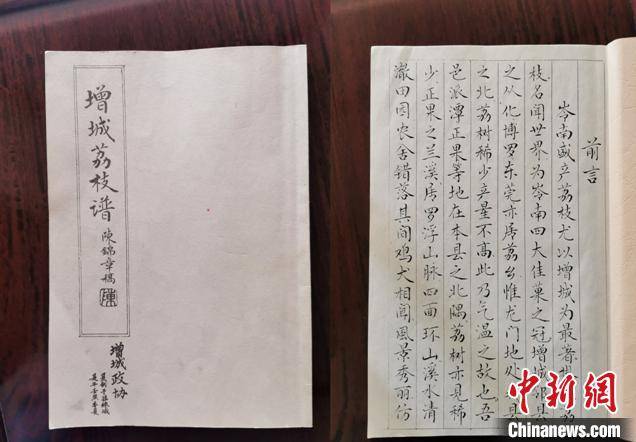 增城荔枝谱
陳錦章稿
陳
增城政协
前言
岑南盛产荔枝尤以增城为最著
枝名闻世界为岑南四大佳菓之冠增城邻县
之从化博罗东莞亦属荔乡惟龙门地处
之北荔树稀少产量不高此乃气温之故也吾
邑派潭正果等地在本县之北隅荔树亦见稀
少正果之兰溪居罗浮山脉四面环山溪水清
澈田园农舍错落其间鸡犬相闻風景秀丽仿
中新网
www.chinanews.com